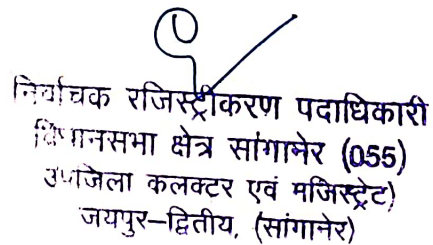 निर्वाचक रजिस्ट्रीकरण पदाधिकारी
विधानसभा क्षेत्र सांगानेर (055)
उपजिला कलक्टर एवं मजिस्ट्रेट)
जयपुर–द्वितीय, (सांगानेर)